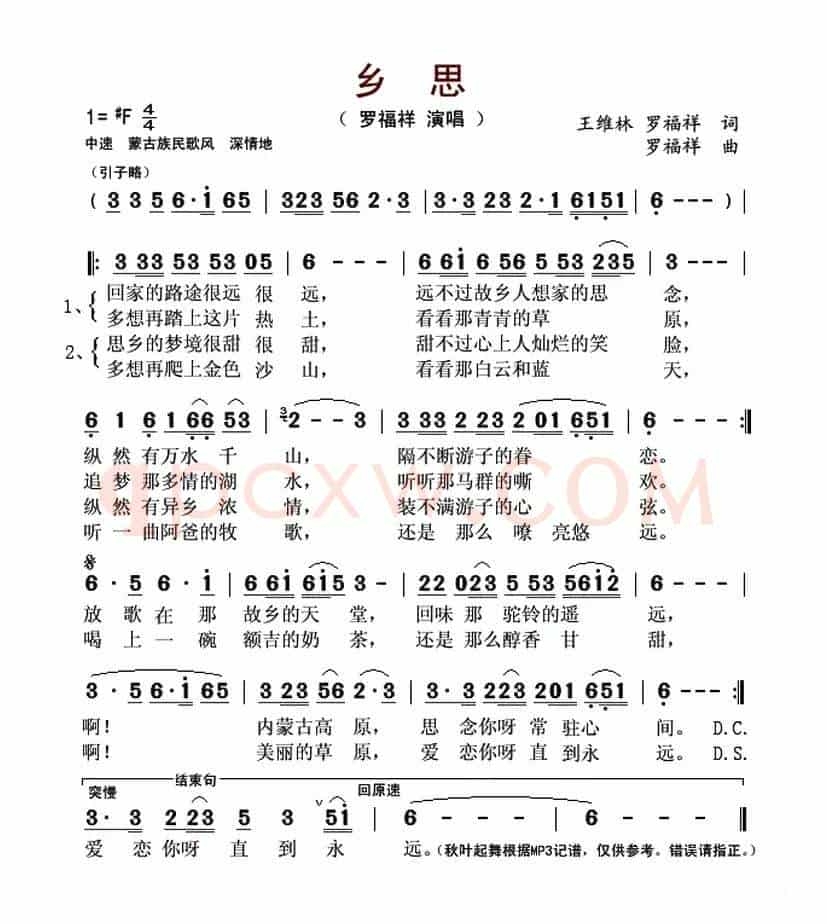 乡 思
1= #F 4/4
( 罗福祥 演唱 )
王维林 罗福祥 词
罗福祥 曲
中速 蒙古族民歌风 深情地
(引子略)
( 3 3 5 6·i 65 | 323 56 2·3 | 3·3 23 2·1 6151 | 6 - - - ) |
‖: 3 33 53 53 05 | 6 - - - | 6 6i 6 56 5 53 235 | 3 - - - |
1、
回家的路途很远 很 远， 远不过故乡人想家的思 念，
多想再踏上这片 热 土， 看看那青青的草 原，
2、
思乡的梦境很甜 很 甜， 甜不过心上人灿烂的笑 脸，
多想再爬上金色 沙 山， 看看那白云和蓝 天，
6 1 6 1 66 53 | 3 2 - - 3 | 3 33 2 23 2 01 651 | 6 - - - :‖
纵 然 有万水 千 山， 隔不断游子的眷 恋。
追 梦 那多情的湖 水， 听听那马群的嘶 欢。
纵 然 有异乡 浓 情， 装不满游子的心 弦。
听 一 曲阿爸的牧 歌， 还是 那么 嘹 亮悠 远。
qpcxw.COM
6 · 5 6 · i | 6 6i i6i5 3 - | 22 023 5 53 56i2 | 6 - - - |
放 歌 在 那 故乡的天 堂， 回味 那 驼铃的遥 远，
喝 上 一 碗 额吉的奶 茶， 还是 那么醇香 甘 甜，
3 · 5 6·i 65 | 3 23 56 2·3 | 3· 3 23 223 201 651 | 6 - - - :‖
啊！ 内蒙古高 原， 思 念你呀 常 驻心 间。 D.C.
啊！ 美丽的草 原， 爱 恋你呀 直 到永 远。 D.S.
突慢 结束句 回原速
3· 3 2 23 5 3 ∨ 5i | 6 - - - | 6 - - - ‖
爱 恋你呀 直 到 永 远。(秋叶起舞根据MP3记谱，仅供参考。错误请指正。)